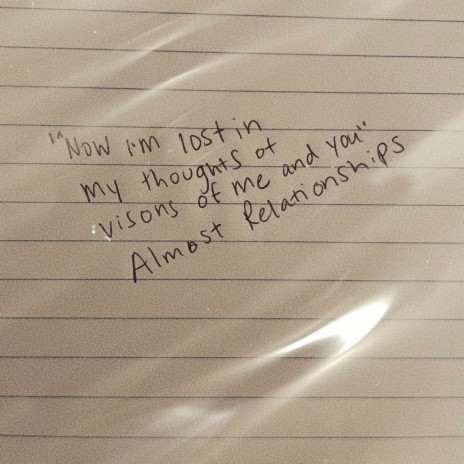 "Now i'm lost in
my thoughts of
visons of me and you"
Almost Relationships